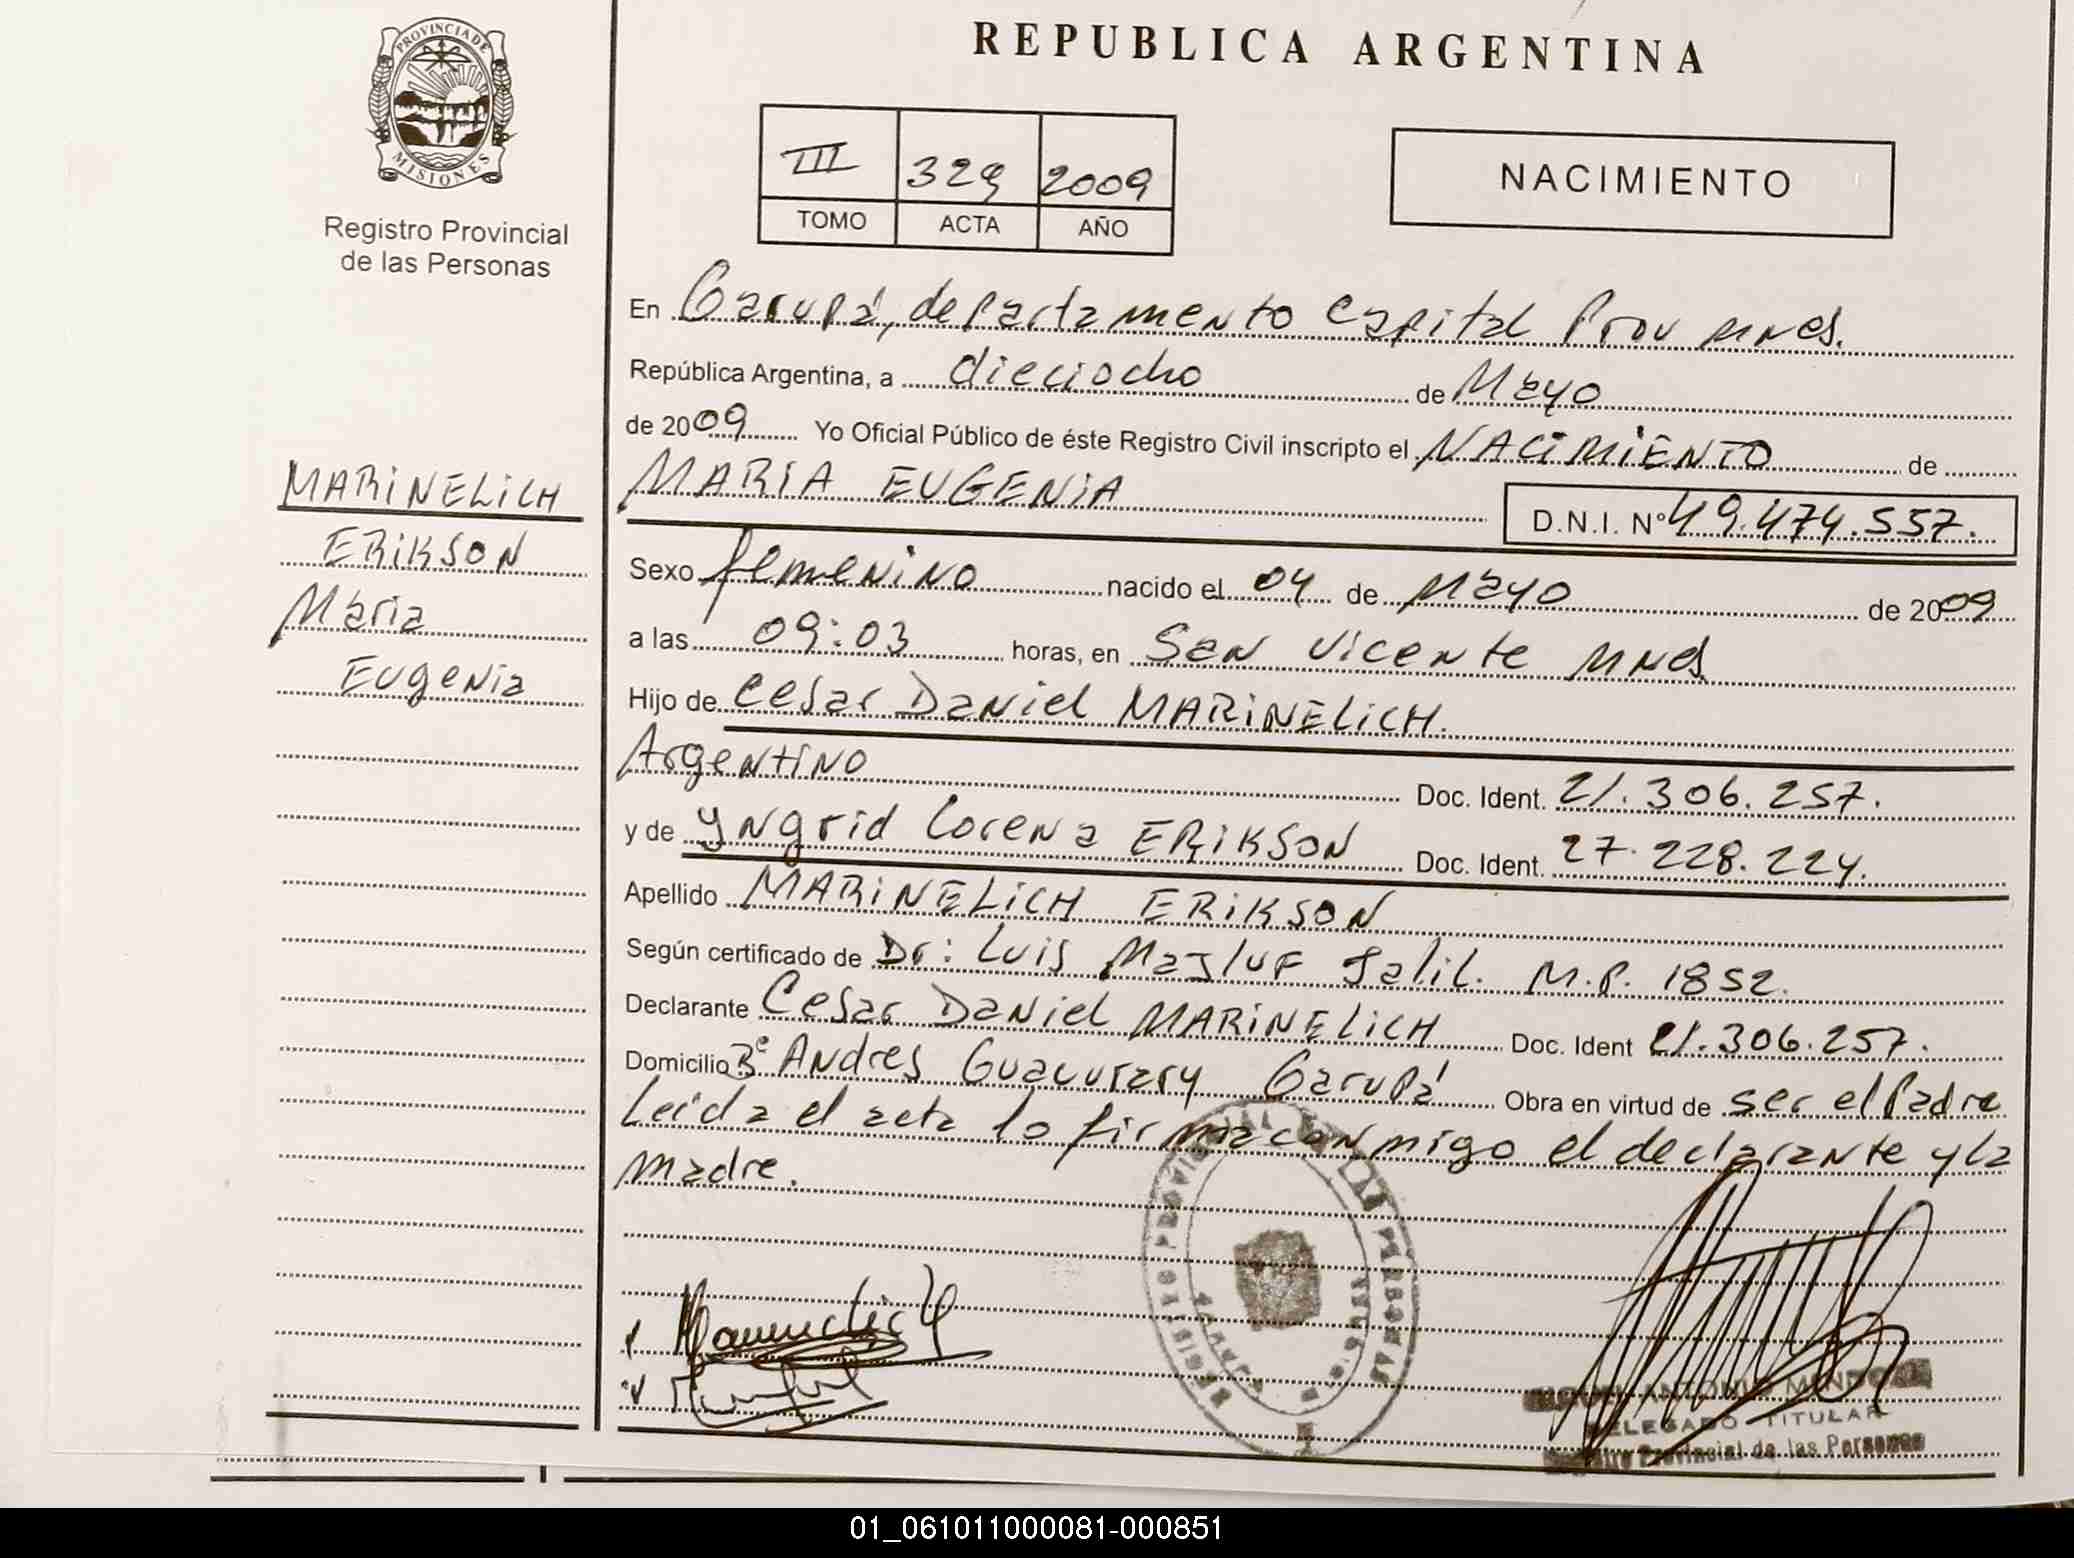 PROVINCIA DE
MISIONES
Registro Provincial
de las Personas
MARINELICH
ERIKSON
Maria
Eugenia
REPUBLICA ARGENTINA
III 329 2009
TOMO ACTA AÑO
NACIMIENTO
En Garupá, departamento Capital Prov Mnes.
República Argentina, a dieciocho de Mayo
de 2009 Yo Oficial Público de éste Registro Civil inscripto el NACIMIENTO de
MARIA EUGENIA D.N.I. Nº 49.474.557.
Sexo femenino nacido el 04 de Mayo de 2009
a las 09:03 horas, en San Vicente Mnes
Hijo de Cesar Daniel MARINELICH.
Argentino Doc. Ident. 21.306.257.
y de Yngrid Lorena ERIKSON Doc. Ident. 27.228.224.
Apellido MARINELICH ERIKSON
Según certificado de Dr: Luis Masluf Jalil. M.P. 1852.
Declarante Cesar Daniel MARINELICH Doc. Ident 21.306.257.
Domicilio Bº Andres Guacurary Garupá Obra en virtud de ser el Padre
Leida el acta lo firma conmigo el declarante y la
madre.
REGISTRO PROVINCIAL DE LAS PERSONAS
ANTONIO MENDOZA
DELEGADO TITULAR
Registro Provincial de las Personas
01_061011000081-000851